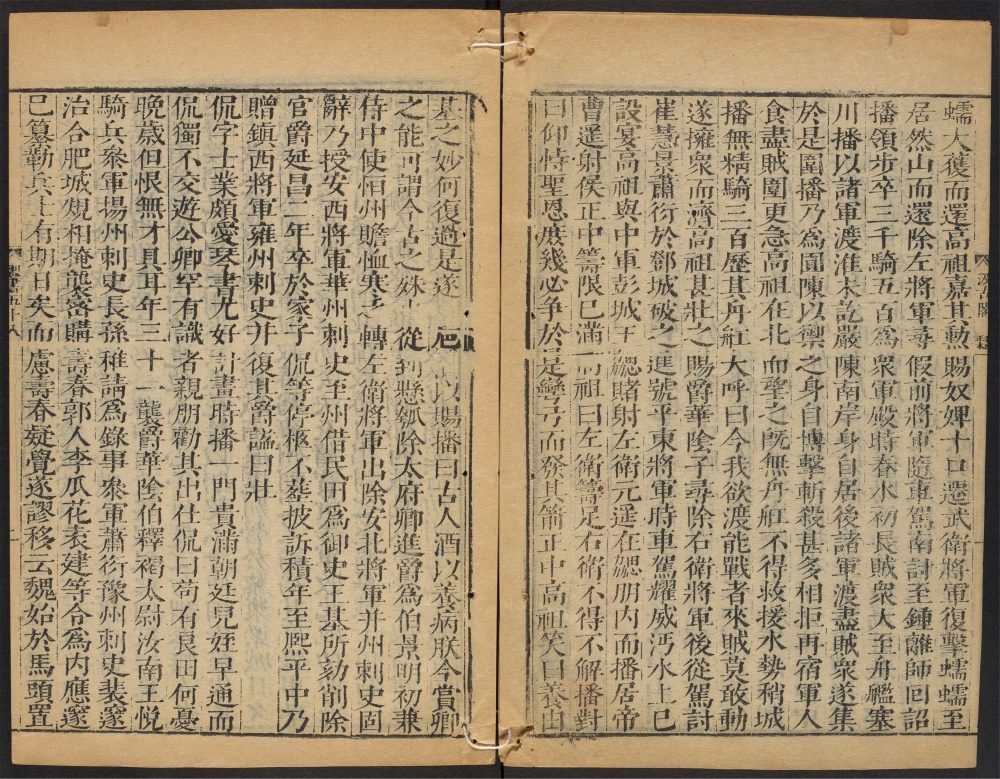 蠕大獲而還高祖嘉其勳賜奴婢十口遷武衛將軍復擊蠕蠕至
居然山而還除左將軍尋假前將軍隨車駕南討至鍾離師回詔
播領步卒三千騎五百為衆軍殿時春水初長賊衆大至舟艦塞
川播以諸軍渡淮未訖嚴陳南岸身自居後諸軍渡盡賊衆遂集
於是圍播乃為圓陳以禦之身自搏擊斬殺甚多相拒再宿軍人
食盡賊圍更急高祖在北而望之旣無舟舡不得救援水勢稍減
播無精騎三百歷其舟舡大呼曰今我欲渡能戰者來賊莫敢動
遂擁衆而濟高祖甚壯之賜爵華陰子尋除右衛將軍後從駕討
崔慧景蕭衍於鄧城破之進號平東將軍時車駕耀威沔水上巳
設宴高祖與中軍彭城王勰賭射左衛元遥在勰朋内而播居帝
曹遥射侯正中籌限已滿高祖曰左衛籌足右衛不得不解播對
曰仰恃聖恩庶幾必爭於是彎弓而發其箭正中高祖笑曰養由
汲古閣
基之妙何復過是遂 巵 以賜播曰古人酒以養病朕今賞卿
之能可謂今古之殊 從到懸瓠除太府卿進爵為伯景明初兼
侍中使恒州贍恤寒 轉左衛將軍出除安北將軍并州刺史固
辭乃授安西將軍華州刺史至州借民田為御史王基所劾削除
官爵延昌二年卒於家子侃等停柩不葬披訴積年至熙平中乃
贈鎮西將軍雍州刺史并復其爵謚曰壯
侃字士業頗愛琴書尤好計畫時播一門貴滿朝廷兒姪早通而
侃獨不交遊公卿罕有識者親朋勸其出仕侃曰苟有良田何憂
晚歲但恨無才具耳年三十一襲爵華陰伯釋褐太尉汝南王悅
騎兵參軍揚州刺史長孫稚請為錄事參軍蕭衍豫州刺史裴邃
治合肥城規相掩襲密購壽春郭人李瓜花袁建等令為内應邃
已纂勒兵士有期日矣而慮壽春疑覺遂謬移云魏始於馬頭置